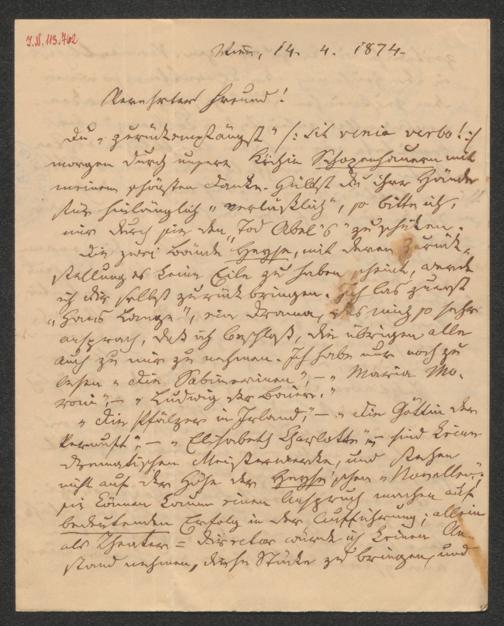 J.N. 115.762
Wien, 14. 4. 1874.
Verehrter Freund!
Du „zurückempfängst" /: sit venia verbo! :/
morgen durch unsere Köchin Schopenhauern mit
meinem schönsten Danke. Hältst du ihre Hände
für hinlänglich „verläßlich", so bitte ich,
mir durch sie den „Tod Abel's" zu schicken.
Die zwei Bände Heyse, mit deren Zurück-
stellung es keine Eile zu haben scheint, werde
ich dir selbst zurück bringen. Ich las zuerst
„Hans Lange", ein Drama, das mich so sehr
ansprach, daß ich beschloß, die übrigen alle
auch zu mir zu nehmen. Ich habe nur noch zu
lesen „die Sabinerinen", – „Maria Mo-
roni", – „Ludwig der Baier."
„die Pfälzer in Irland", – „die Göttin der
Vernunft", – „Elisabeth Charlotte" – sind keine
dramatischen Meisterwerke, und stehen
nicht auf der Höhe der Heyse'schen „Novellen";
sie können kaum einen Anspruch machen auf
bedeutenden Erfolg in der Aufführung; allein
als Theater-Director würde ich keinen An-
stand nehmen, diese Stücke zu bringen, und